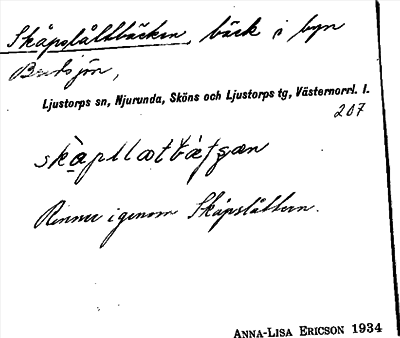 Skåpslåttbäcken, bäck i byn
Bredsjön,
Ljustorps sn, Njurunda, Sköns och Ljustorps tg, Västernorrl. l.
207
Rinner igenom Skåpslåtten.
ANNA-LISA ERICSON 1934